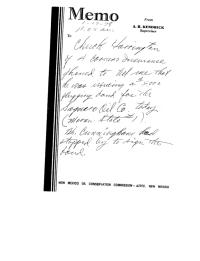 Memo
From
A. R. KENDRICK
Supervisor
To
Chuck Harrington
of insurance
phoned to tell me that
he was issuing a
plugging bond for the
Oil Co. today
State #1)
the Cunninghams had
stopped by to sign the
bond.
NEW MEXICO OIL CONSERVATION COMMISSION - AZTEC, NEW MEXICO